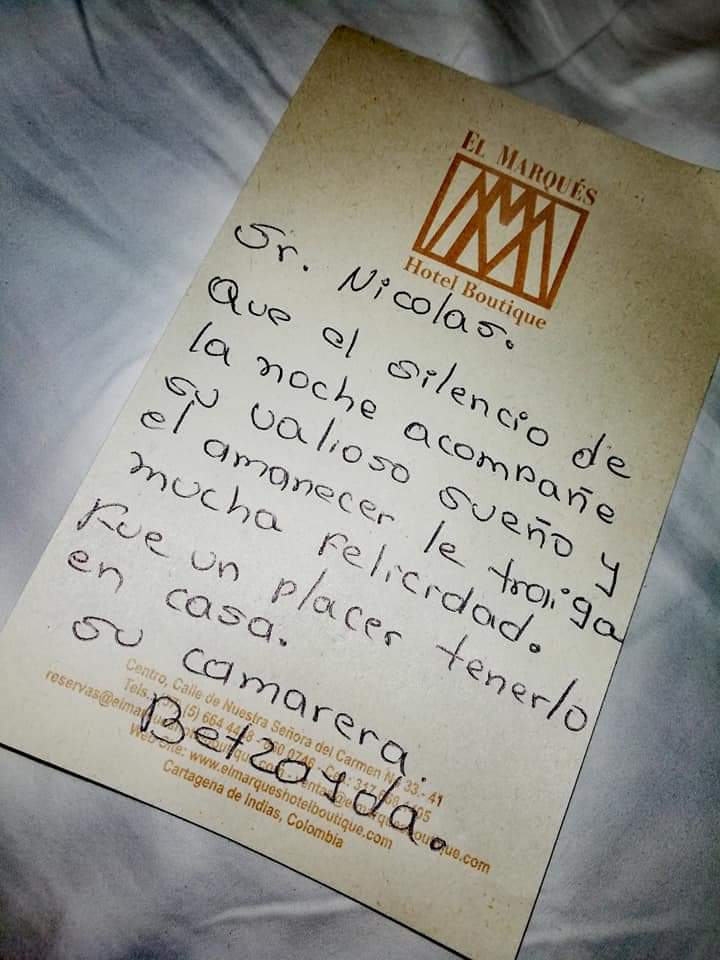 EL MARQUÉS
Hotel Boutique
Sr. Nicolas.
Que el silencio de
la noche acompañe
su valioso sueño y
el amanecer le traiga
mucha felicidad.
Fue un placer tenerlo
en casa.
su camarera.
Betzayda.
Centro, Calle de Nuestra Señora del Carmen N° 33.- 41
Tels. (5) 664
reservas@elmarqueshotelboutique.com
Web Site: www.elmarqueshotelboutique.com
Cartagena de Indias, Colombia